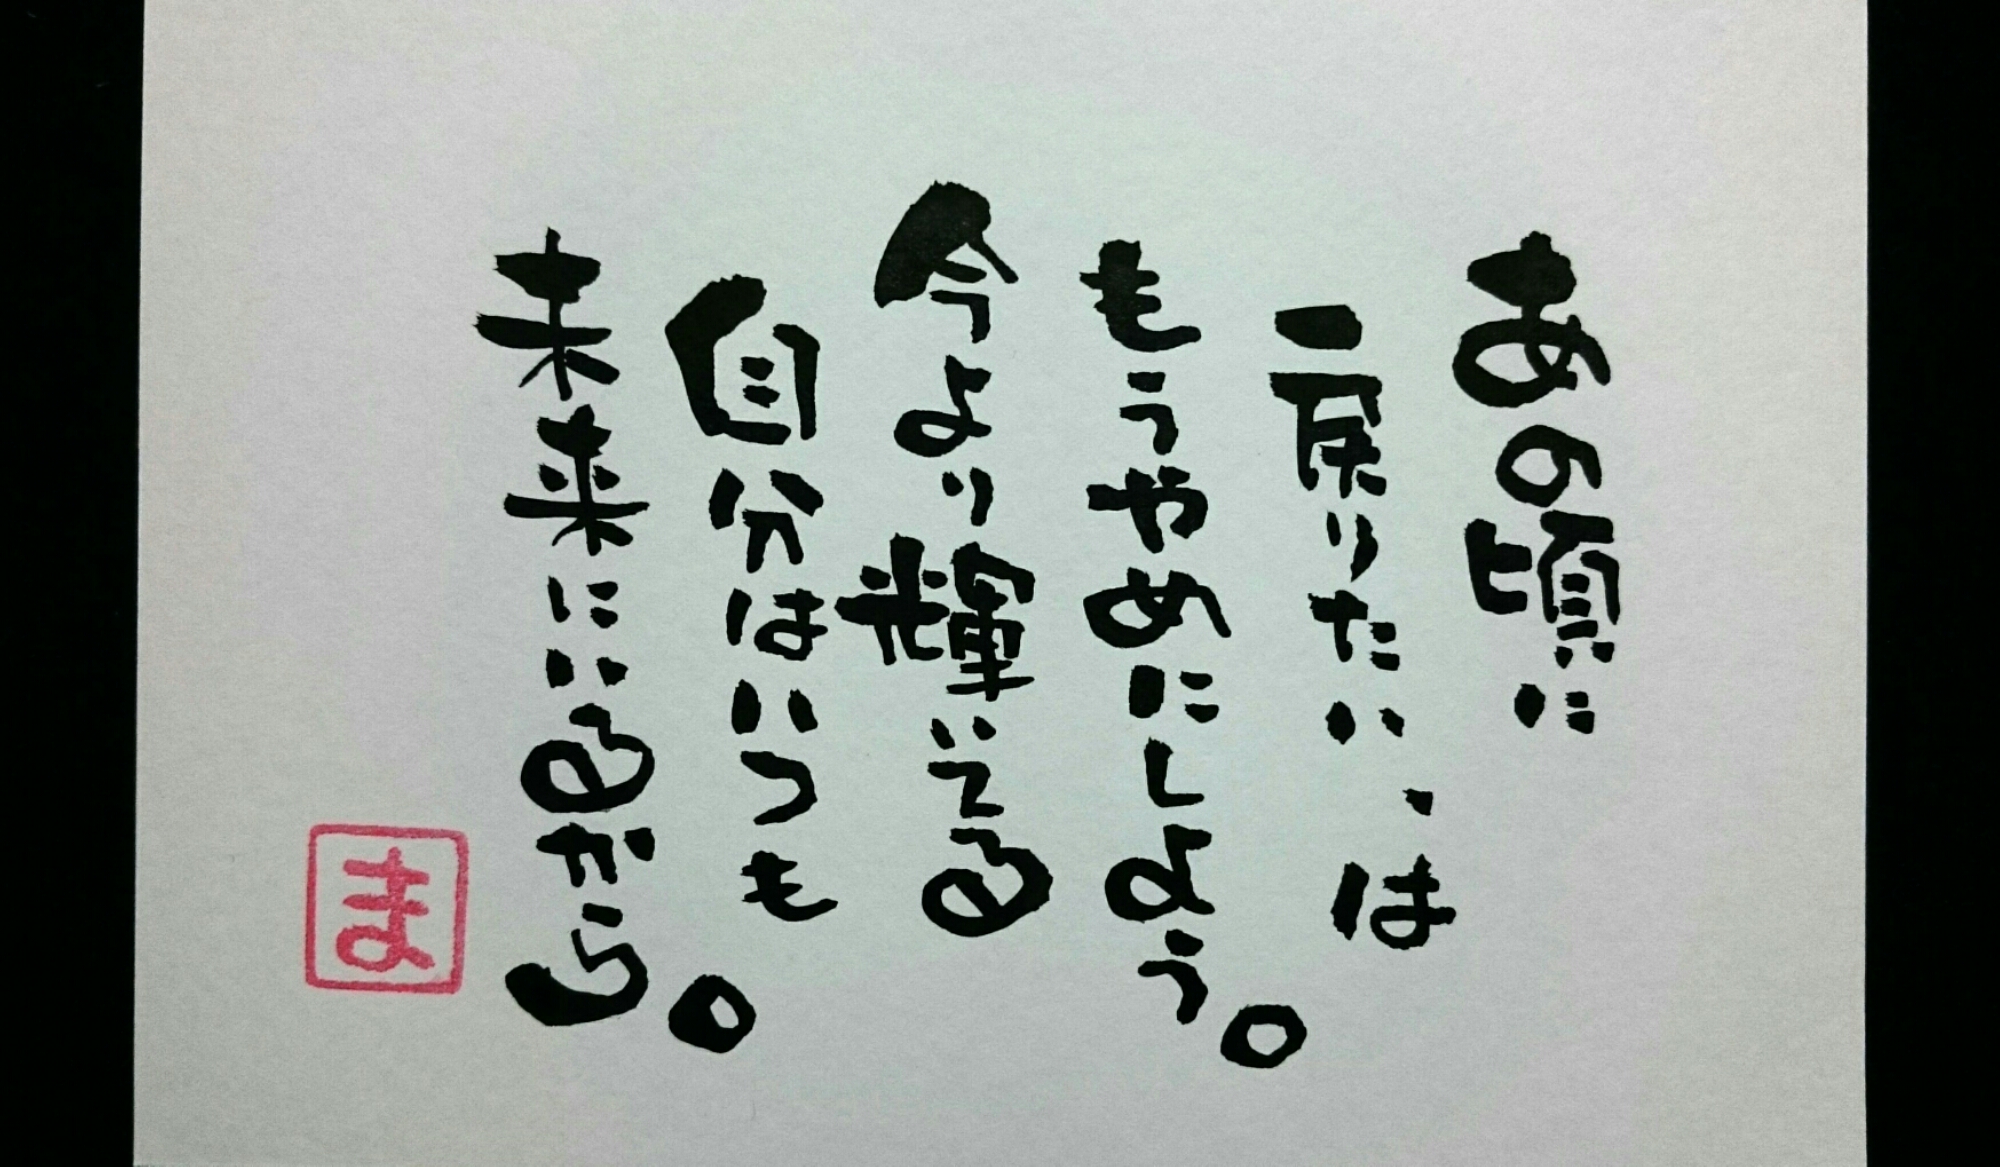 あの頃に
戻りたい、は
もうやめにしよう。
今より輝いてる
自分はいつも
未来にいるから。
ま